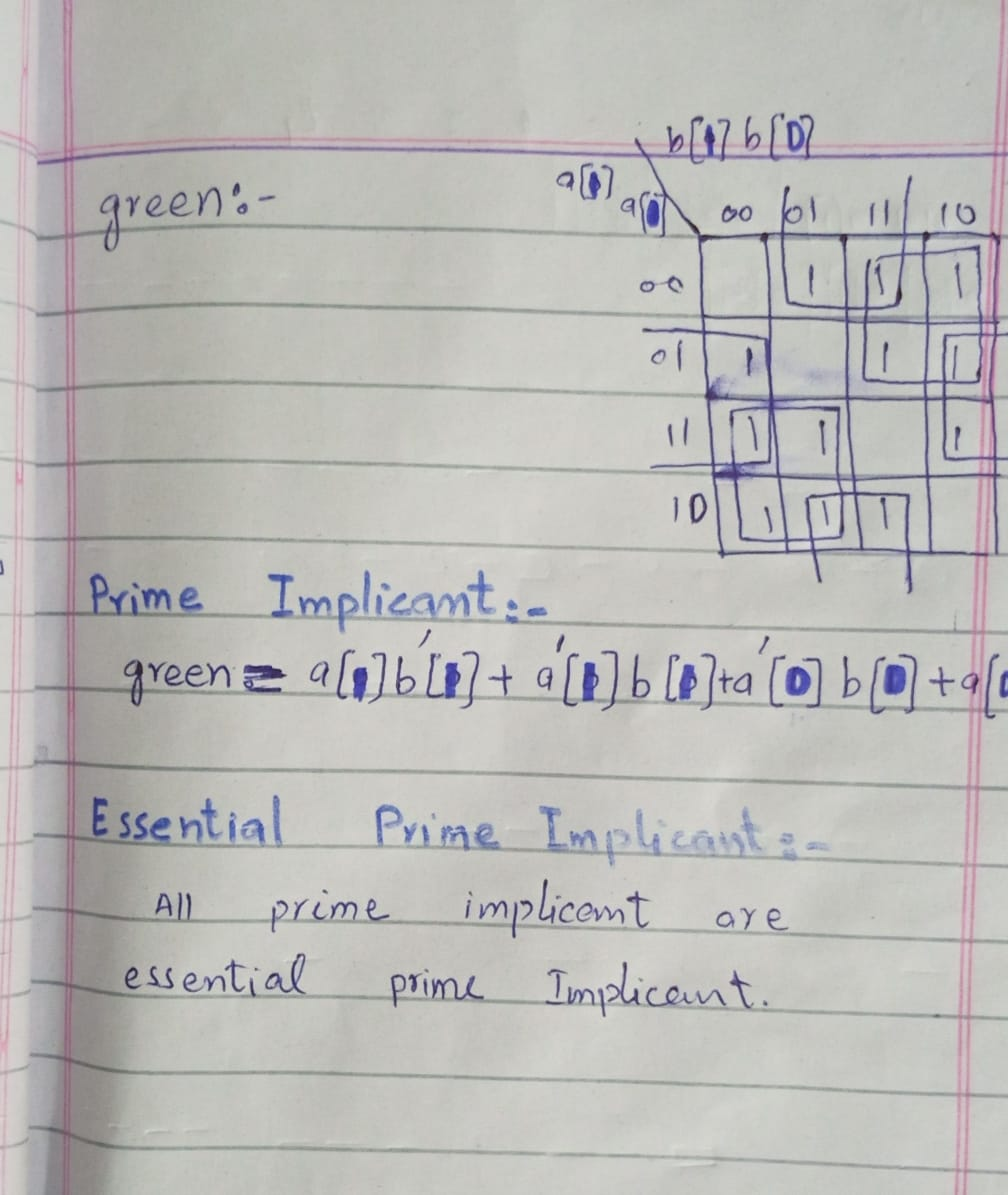 b[1] b[0]
green:-
a[1]
a[0] 00 01 11 10
00 1 1 1
01 1 1 1
11 1 1 1
10 1 1 1
Prime Implicant:-
green = a[1]b'[1] + a'[1] b [1]+a'[0] b[0] + a[
Essential Prime Implicant:-
All prime implicant are
essential prime Implicant.